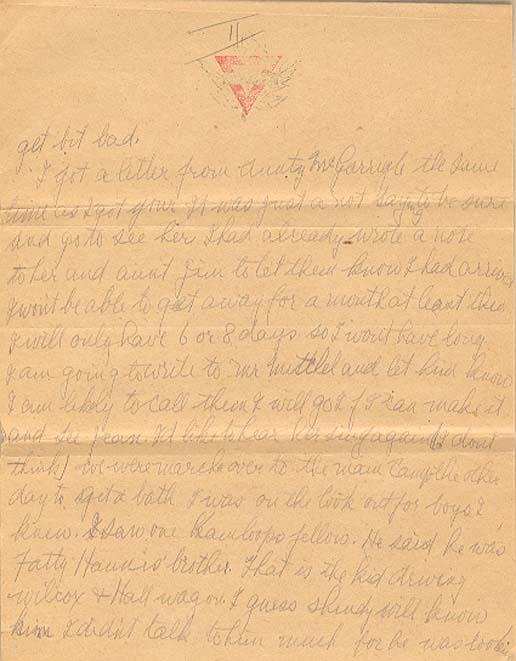 11.
get bit bad.
I got a letter from Aunty McGarrigle the same
time as I got your It was just a not saying to be sure
and go to see her I had already wrote a note
to her and aunt Jim to let them know I had arrived
I wont be able to get away for a month at least then
I will only have 6 or 8 days so I wont have long
I am going to write to Mr and let him know
I am likely to call them I will go if I can make it
and see Jean I'd like to hear her sing again (I dont
think) we were marche over to the main camp the other
day to get a bath I was on the look out for boys I
knew. I saw one Kamloops fellow. He said he was
Fatty brother. That is the kid driving
Wilcox & Hall wagon I guess will know
him I didn't talk to him much for he was lookin